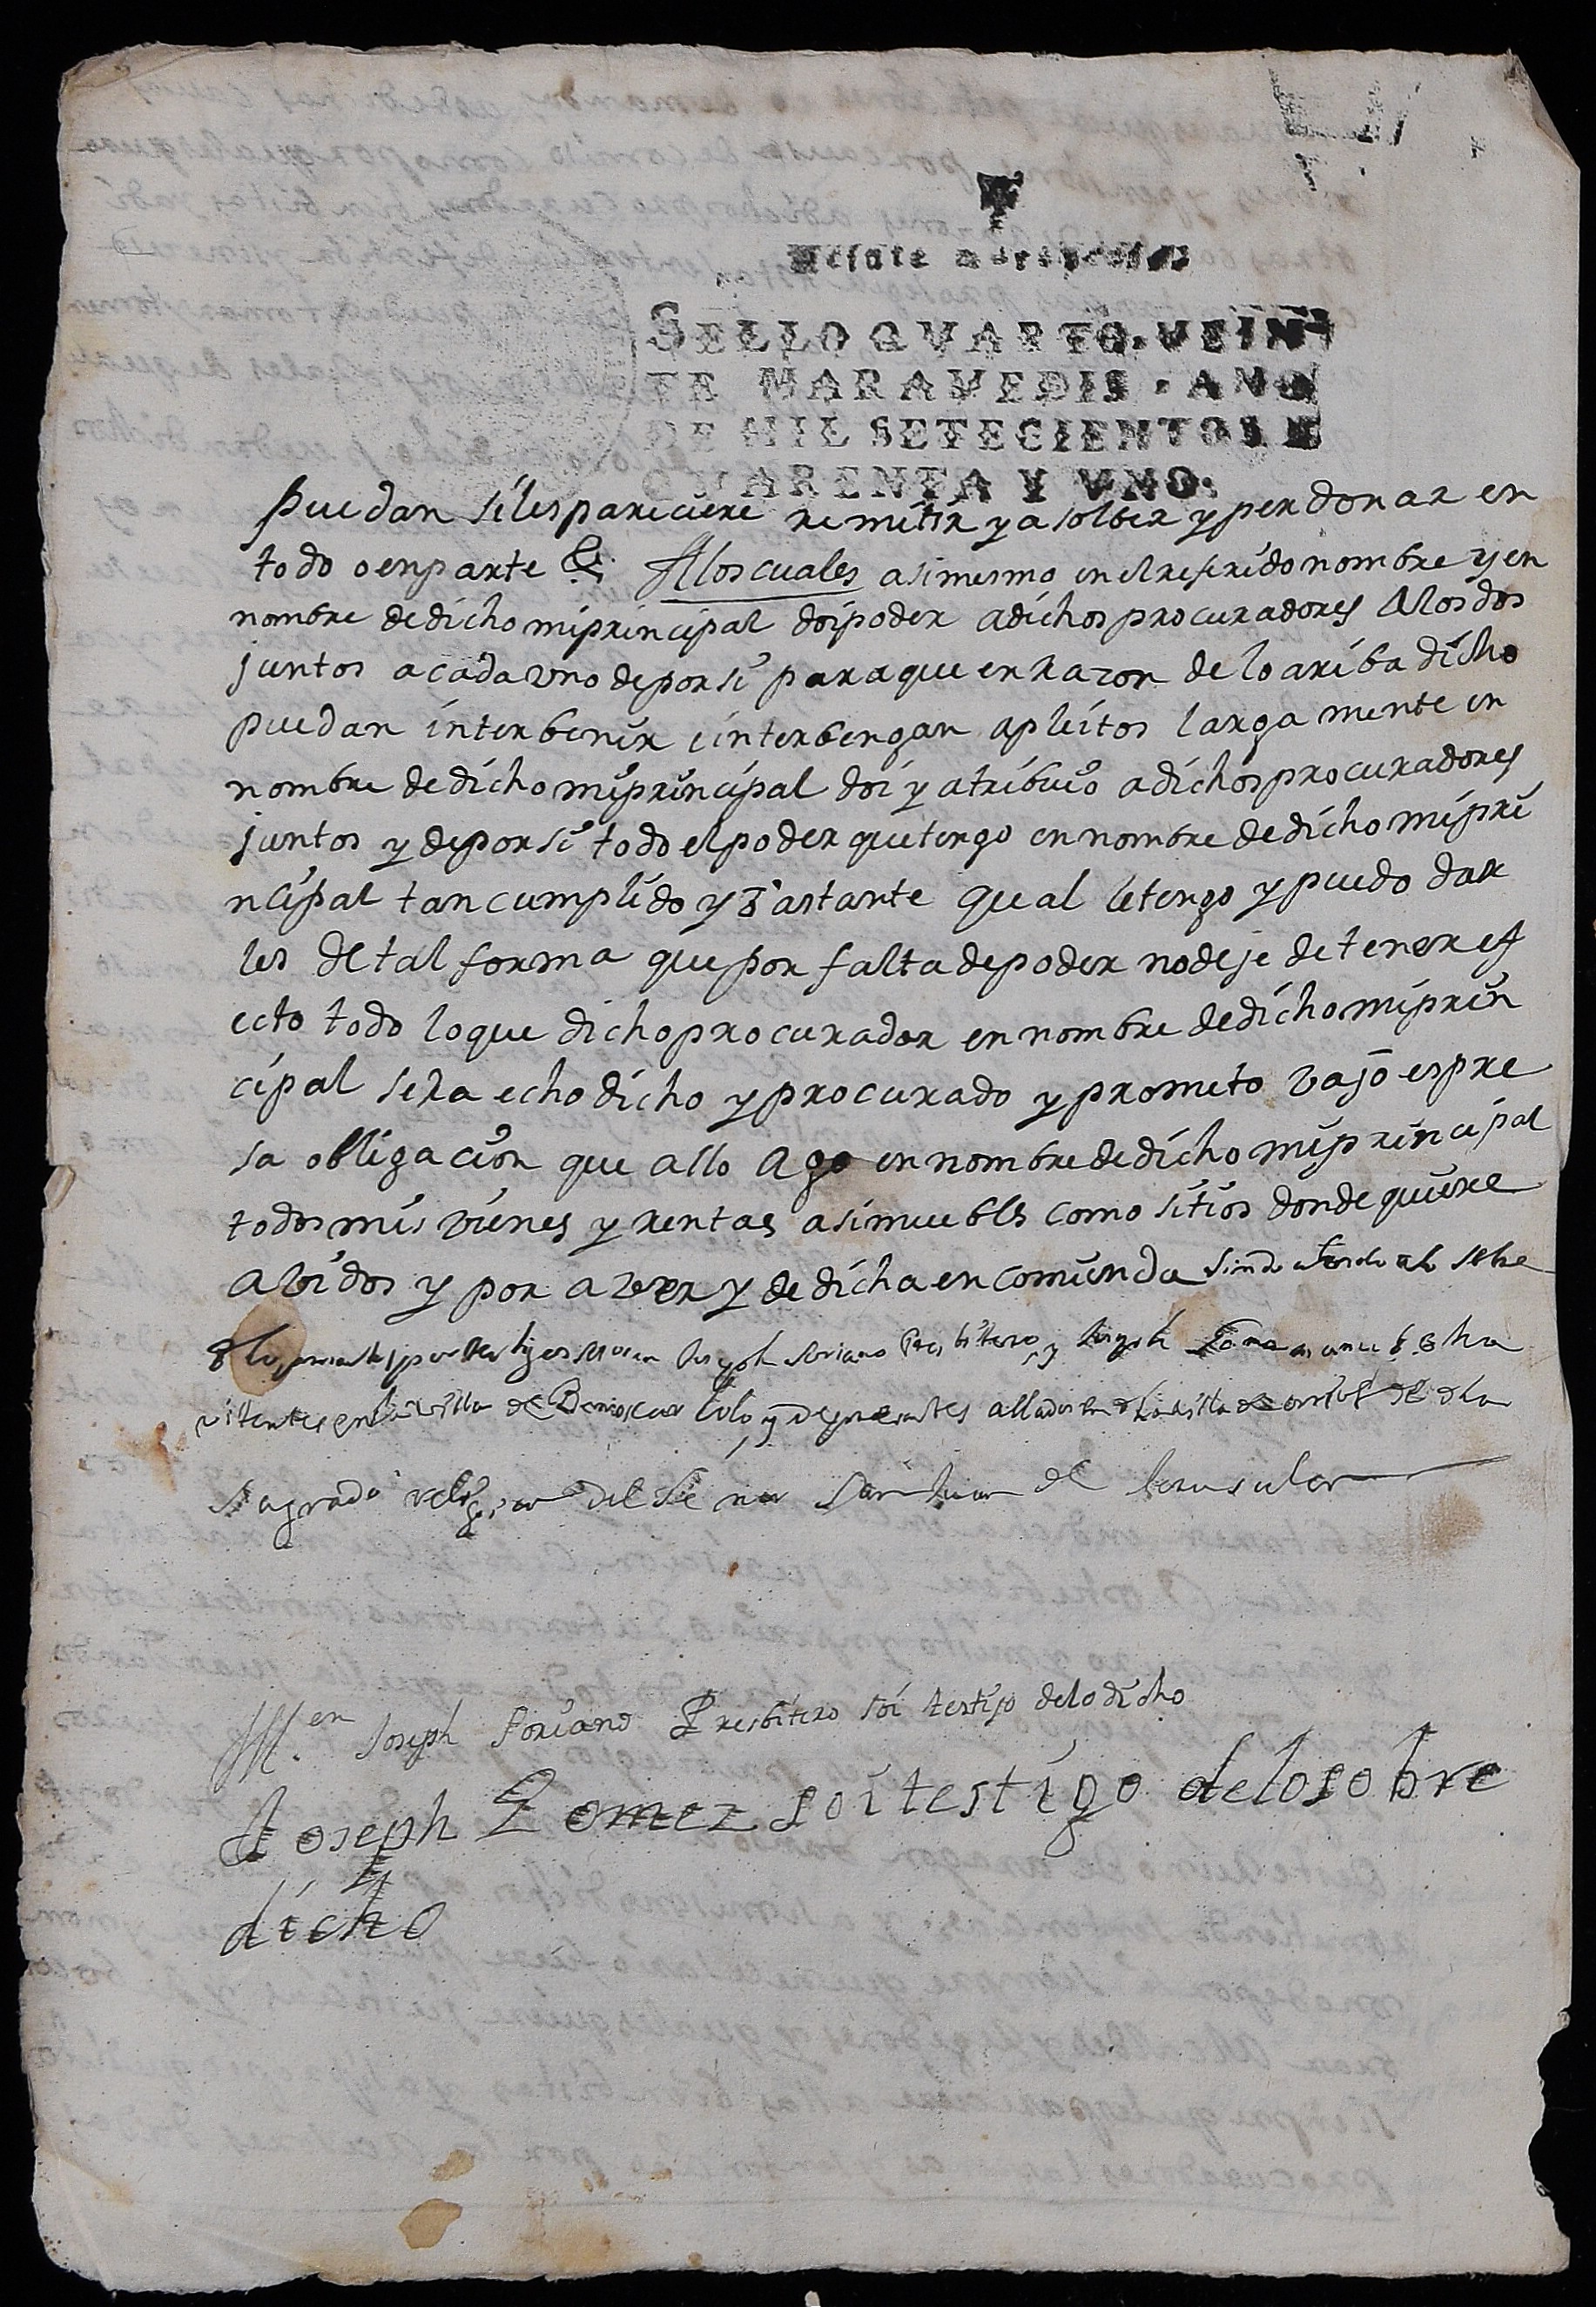 SELLO QVARTO, VEIN
TE MARAVEDIS, AÑO
DE MIL SETECIENTOS
QVARENTA Y VNO.
puedan siles pareciere remitir y asolber y perdonar en
todo o en parte &c. Alos cuales asimesmo en el referido nombre y en
nombre de dicho miprincipal doi poder a dichos procuradores Alos dos
juntos a cada vno de por si para que en razon de lo ariba dicho
puedan interbenir e interbengan a pleitos largamente en
nombre de dicho miprincipal doi y atribuio a dichos procuradores
juntos y de por si todo el poder que tengo en nombre de dicho mipri
ncipal tan cumplido y bastante qual le tengo y puedo dar
les de tal forma que por falta de poder no deje de tener ef
ecto todo lo que dicho procurador en nombre de dicho miprin
cipal sera echo dicho y procurado y prometo vajo espre
sa obligacion que allo Ago en nombre de dicho miprincipal
todos mis vienes y rentas asi muebles como sitios donde quiere
avidos y por aver y de dicha encomienda siendo a todo lo sobre
dho presentes por testigos Mosen Joseph Soriano Presbitero, y Joseph
vitantes en la villa de y
sagrada religion del Señor San Juan de Jerusalen
M.en Joseph Soriano Presbitero soi testigo de lo dicho
Joseph Gomez soi testigo de lo sobre
dicho